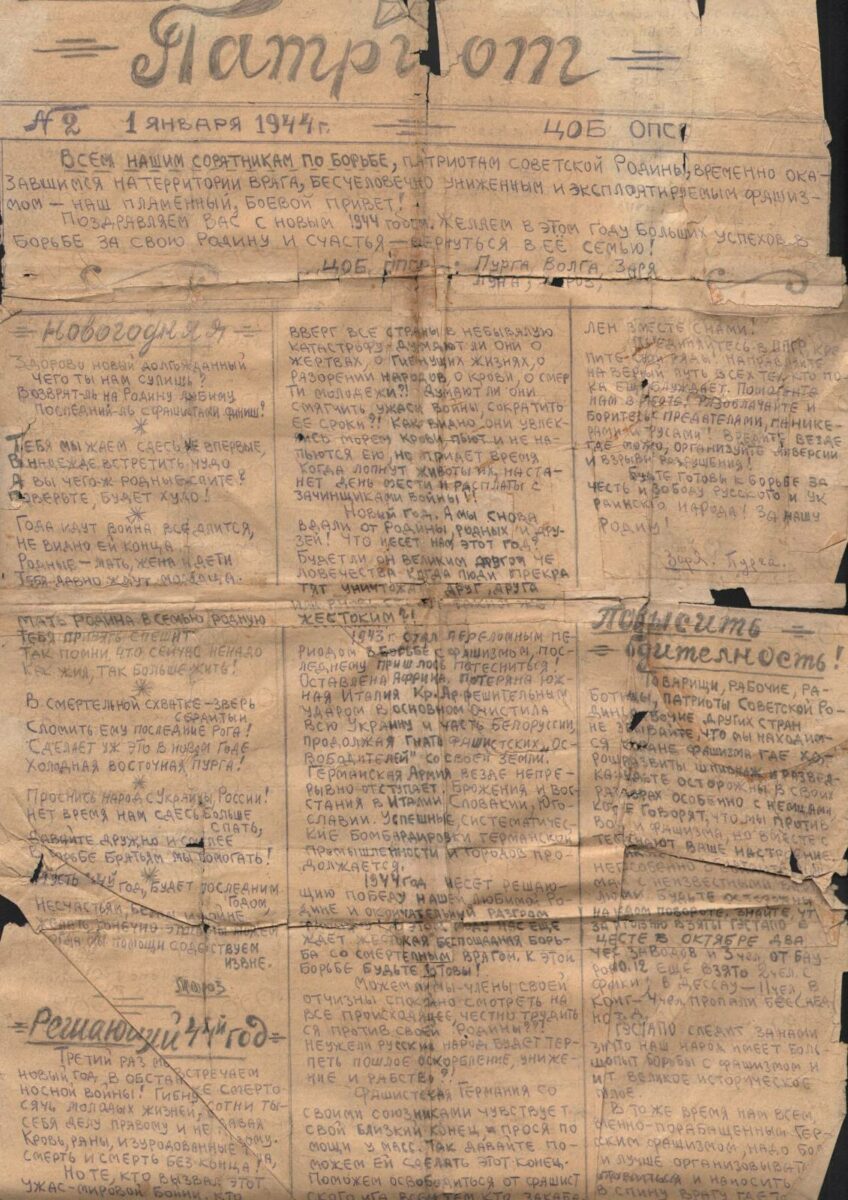 Патриот
№ 2 1 ЯНВАРЯ 1944 г. ЦОБ ОПС
ВСЕМ НАШИМ СОРАТНИКАМ ПО БОРЬБЕ, ПАТРИОТАМ СОВЕТСКОЙ РОДИНЫ, ВРЕМЕННО ОКА-
ЗАВШИМСЯ НА ТЕРРИТОРИИ ВРАГА, БЕСЧЕЛОВЕЧНО УНИЖЕННЫМ И ЭКСПЛОАТИРУЕМЫМ ФАШИЗ-
МОМ — НАШ ПЛАМЕННЫЙ, БОЕВОЙ ПРИВЕТ!
ПОЗДРАВЛЯЕМ ВАС С НОВЫМ 1944 ГОДОМ. ЖЕЛАЕМ В ЭТОМ ГОДУ БОЛЬШИХ УСПЕХОВ В
БОРЬБЕ ЗА СВОЮ РОДИНУ И СЧАСТЬЯ — ВЕРНУТЬСЯ В ЕЁ СЕМЬЮ!
ЦОБ ОПСР: ПУРГА, ВОЛГА, ЗАРЯ
ЛУНА,
НОВОГОДНЯЯ
ЗДОРОВО НОВЫЙ ДОЛГОЖДАННЫЙ
ЧЕГО ТЫ НАМ СУЛИШЬ?
ВОЗВРАТ-ЛЬ НА РОДИНУ ЛЮБИМУ
ПОСЛЕДНИЙ-ЛЬ С ФАШИСТАМИ ФИНИШ?
ТЕБЯ МЫ ЖДЕМ ЗДЕСЬ НЕ ВПЕРВЫЕ,
В НАДЕЖДЕ ВСТРЕТИТЬ ЧУДО
А ВЫ ЧЕГО-Ж РОДНЫЕ СПИТЕ?
ПОВЕРЬТЕ, БУДЕТ ХУДО!
ГОДА ИДУТ ВОЙНА ВСЕ ДЛИТСЯ,
НЕ ВИДНО ЕЙ КОНЦА
РОДНЫЕ — МАТЬ, ЖЕНА И ДЕТИ
ТЕБЯ ДАВНО ЖДУТ
МАТЬ РОДИНА В СЕМЬЮ РОДНУЮ
ТЕБЯ ПРИНЯТЬ СПЕШИТ
ТАК ПОМНИ ЧТО СЕЙЧАС НЕНАДО
КАК ЖИЛ, ТАК БОЛЬШЕ ЖИТЬ!
В СМЕРТЕЛЬНОЙ СХВАТКЕ — ЗВЕРЬ
СЛОМИТЬ ЕМУ ПОСЛЕДНИЕ РОГА!
СДЕЛАЕТ УЖ ЭТО В НОВОМ ГОДЕ
ХОЛОДНАЯ ВОСТОЧНАЯ ПУРГА!
ПРОСНИТЬ НАРОД С УКРАИНЫ, РОССИИ!
НЕТ ВРЕМЯ НАМ ЗДЕСЬ БОЛЬШЕ
СПАТЬ,
ДАВАЙТЕ ДРУЖНО И СМЕЛЕЕ
В БОРЬБЕ БРАТЬЯМ МЫ ПОМОГАТЬ!
ПУСТЬ ГОД, БУДЕТ ПОСЛЕДНИМ
ГОДОМ,
НЕСЧАСТЬЯ,
КОНЕЧНО
ПОМОЩИ СОДЕЙСТВУЕМ
ИЗВНЕ.
МОРОЗ
РЕШАЮЩИЙ 44ЫЙ ГОД
ТРЕТИЙ РАЗ МЫ ВСТРЕЧАЕМ
НОВЫЙ ГОД, В ОБСТАН СМЕРТО-
НОСНОЙ ВОЙНЫ! ГИБНУТ СОТНИ ТЫ-
СЯЧЬ МОЛОДЫХ ЖИЗНЕЙ,
СЕБЯ ДЕЛУ ПРАВОМУ И
КРОВЬ, РАНЫ, ИЗУРОДОВАННЫЕ
СМЕРТЬ И СМЕРТЬ БЕЗ КОНЦА!
НО ТЕ, КТО ВЫЗВАЛ ЭТОТ
УЖАС-МИРОВОЙ БОЙНИ, КТО
ВВЕРГ ВСЕ СТРАНЫ В НЕБЫВАЛУЮ
КАТАСТРОФУ — ДУМАЮТ ЛИ ОНИ О
ЖЕРТВАХ, О ГИБНУЩИХ ЖИЗНЯХ, О
РАЗОРЕНИИ НАРОДОВ, О КРОВИ, О СМЕР
ТИ МОЛОДЕЖИ?! ДУМАЮТ ЛИ ОНИ
СМЯГЧИТЬ УЖАСЫ ВОЙНЫ, СОКРАТИТЬ
ЕЕ СРОКИ?! КАК ВИДНО ОНИ УВЛЕК-
ЛИСЬ МОРЕМ КРОВИ ПЬЮТ И НЕ НА-
ПЬЮТСЯ ЕЮ, НО ПРИДЕТ ВРЕМЯ
КОГДА ЛОПНУТ ЖИВОТЫ ИХ, НАСТА-
НЕТ ДЕНЬ МЕСТИ И РАСПЛАТЫ С
ЗАЧИНЩИКАМИ ВОЙНЫ!!
НОВЫЙ ГОД, А МЫ СНОВА
ВДАЛИ ОТ РОДИНЫ, РОДНЫХ И ДРУ-
ЗЕЙ! ЧТО НЕСЕТ НАМ ЭТОТ ГОД?
БУДЕТ ЛИ ОН ВЕЛИКИМ ДЛЯ ЧЕ
ЛОВЕЧЕСТВА КОГДА ЛЮДИ ПРЕКРА
ТЯТ УНИЧТОЖАТЬ ДРУГ ДРУГА
ЖЕСТОКИМ?!
1943 Г. СТАЛ ПЕРЕЛОМНЫМ ПЕ-
РИОДОМ В БОРЬБЕ С ФАШИЗМОМ, ПОС-
ЛЕДНЕМУ ПРИШЛОСЬ ПОТЕСНИТЬСЯ!
ОСТАВЛЕНА АФРИКА, ПОТЕРЯНА ЮЖ-
НАЯ ИТАЛИЯ КР. АР. РЕШИТЕЛЬНЫМ
УДАРОМ В ОСНОВНОМ ОЧИСТИЛА
ВСЮ УКРАИНУ И ЧАСТЬ БЕЛОРУССИИ,
ПРОДОЛЖАЯ ГНАТЬ ФАШИСТСКИХ „ОС-
ВОБОДИТЕЛЕЙ" СО СВОЕЙ ЗЕМЛИ.
ГЕРМАНСКАЯ АРМИЯ ВЕЗДЕ НЕПРЕ-
РЫВНО ОТСТУПАЕТ. БРОЖЕНИЯ И ВОС-
СТАНИЯ В ИТАЛИИ СЛОВАКИИ, ЮГО-
СЛАВИИ. УСПЕШНЫЕ СИСТЕМАТИЧЕС-
КИЕ БОМБАРДИРОВКИ ГЕРМАНСКОЙ
ПРОМЫШЛЕННОСТИ И ГОРОДОВ ПРО-
ДОЛЖАЕТСЯ.
1944 ГОД НЕСЕТ РЕШАЮ-
ЩУЮ ПОБЕДУ НАШЕЙ ЛЮБИМОЙ РО-
ДИНЕ И ОКОНЧАТЕЛЬНЫЙ РАЗГРОМ
В ЭТОМ ГОДУ НАС ЕЩЕ
ЖДЕТ ЖЕСТОКАЯ БЕСПОЩАДНАЯ БОРЬ-
БА СО СМЕРТЕЛЬНЫМ ВРАГОМ, К ЭТОЙ
БОРЬБЕ БУДЬТЕ ГОТОВЫ!
МОЖЕМ ЛИ МЫ — ЧЛЕНЫ СВОЕЙ
ОТЧИЗНЫ СПОКОЙНО СМОТРЕТЬ НА
ВСЕ ПРОИСХОДЯЩЕЕ, ЧЕСТНО ТРУДИТЬ
СЯ ПРОТИВ СВОЕЙ РОДИНЫ???
НЕУЖЕЛИ РУССКИЙ НАРОД БУДЕТ ТЕР-
ПЕТЬ ПОШЛОЕ ОСКОРБЛЕНИЕ, УНИЖЕ-
НИЕ И РАБСТВО?!
ФАШИСТСКАЯ ГЕРМАНИЯ СО
СВОИМИ СОЮЗНИКАМИ ЧУВСТВУЕТ
СВОЙ БЛИЗКИЙ КОНЕЦ — ПРОСЯ ПО
МОЩИ У МАСС. ТАК ДАВАЙТЕ ПО-
МОЖЕМ ЕЙ СДЕЛАТЬ ЭТОТ КОНЕЦ.
ПОМОЖЕМ ОСВОБОДИТЬСЯ ОТ ФАШИСТ
СКОГО ИГА ВСЕМ ТЕМ КТО ЗАКАБА
ЛЕН ВМЕСТЕ С НАМИ!
КРЕ
ПИТЕ СВОИ РЯДЫ! НАПРАВЛЯЙТЕ
НА ВЕРНЫЙ ПУТЬ ВСЕХ ТЕХ, КТО ПО-
КА ЕЩЕ БЛУЖДАЕТ. ПОМОГАЙТЕ
НАМ РАЗОБЛАЧАЙТЕ И
БОРИТЕСЬ С ПРЕДАТЕЛЯМИ, ПАНИКЕ-
РАМИ И ТРУСАМИ! ВРЕДИТЕ ВЕЗДЕ
ГДЕ МОЖНО, ОРГАНИЗУЙТЕ ДИВЕРСИИ
И ВЗРЫВЫ
БУДТЕ ГОТОВЫ К БОРЬБЕ ЗА
ЧЕСТЬ И СВОБОДУ РУССКОГО И УК
РАИНСКОГО НАРОДА! ЗА НАШУ
РОДИНУ!
Заря. Пурга.
ПОВЫСИТЬ
БДИТЕЛНОСТЬ!
ТОВАРИЩИ, РАБОЧИЕ, РА-
БОТНИЦЫ, ПАТРИОТЫ СОВЕТСКОЙ РО-
ДИНЫ РАБОЧИЕ ДРУГИХ СТРАН
НЕ ЗАБЫВАЙТЕ, ЧТО МЫ НАХОДИМ-
СЯ В СТРАНЕ ФАШИЗМА ГДЕ
РАЗВИТЫ ШПИОНАЖ И РАЗВЕД-
КА БУДЬТЕ ОСТОРОЖНЫ В СВОИХ
РАЗГОВОРАХ ОСОБЕННО С НЕМЦАМИ,
КОТ ГОВОРЯТ, ЧТО МЫ ПРОТИВ
ФАШИЗМА, НО ВМЕСТЕ С
ВАШЕ НАСТРОЕНИЕ.
С НЕИЗВЕСТНЫМИ ВАМ
ЛЮДЬМИ БУДЬТЕ
НА КАЖДОМ ПОВОРОТЕ. ЗНАЙТЕ, ЧТ
ВЗЯТЫ ГЕСТАПО В
В ОКТЯБРЕ ДВА
ЗАВОДОВ И 3 ЧЕЛ. ОТ БАУ-
РОВ. 10.12 ЕЩЕ ВЗЯТО 2 ЧЕЛ. С
В ДЕССАУ — 11 ЧЕЛ. В
4 ЧЕЛ. ПРОПАЛИ
ГЕСТАПО СЛЕДИТ ЗА НАМИ
НАШ НАРОД ИМЕЕТ БОЛЬ-
ОПЫТ БОРЬБЫ С ФАШИЗМОМ И
ВЕЛИКОЕ ИСТОРИЧЕСКОЕ
В ТО ЖЕ ВРЕМЯ НАМ ВСЕМ,
ПОРАБОЩЕННЫМ ГЕР
ФАШИЗМОМ, НАДО БОЛ
И ЛУЧШЕ ОРГАНИЗОВЫВАТЬ
И НАНОСИТЬ
В СПИНУ ВРАГУ